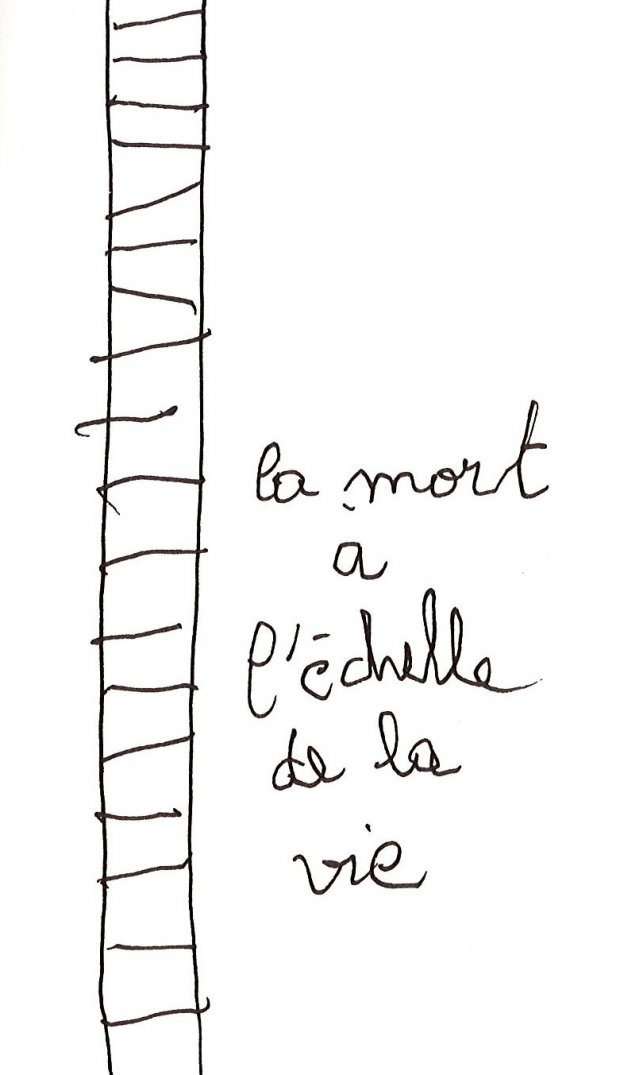 la mort
à
l'échelle
de la
vie